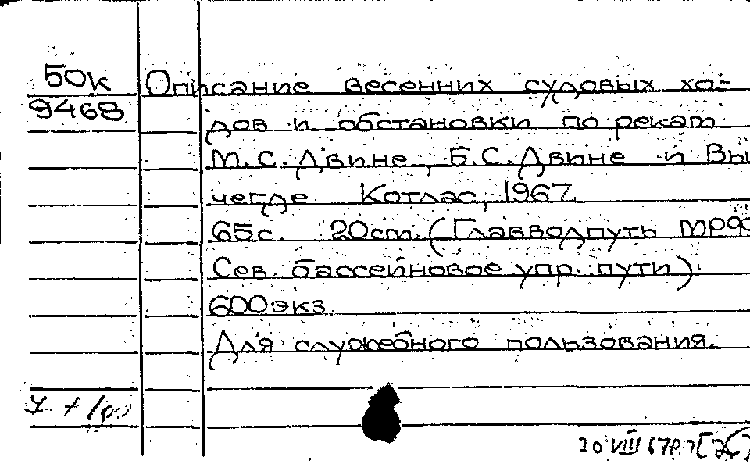 50к
9468
Описание весенних судовых хо-
дов и обстановки по рекам
М.С.Двине, Б.С.Двине и Вы
чегде Котлас, 1967.
65с. 20cm. (Главводпуть МРФ
Сев. бассейновое упр. пути).
600экз.
Для служебного пользования.
20 VIII 67